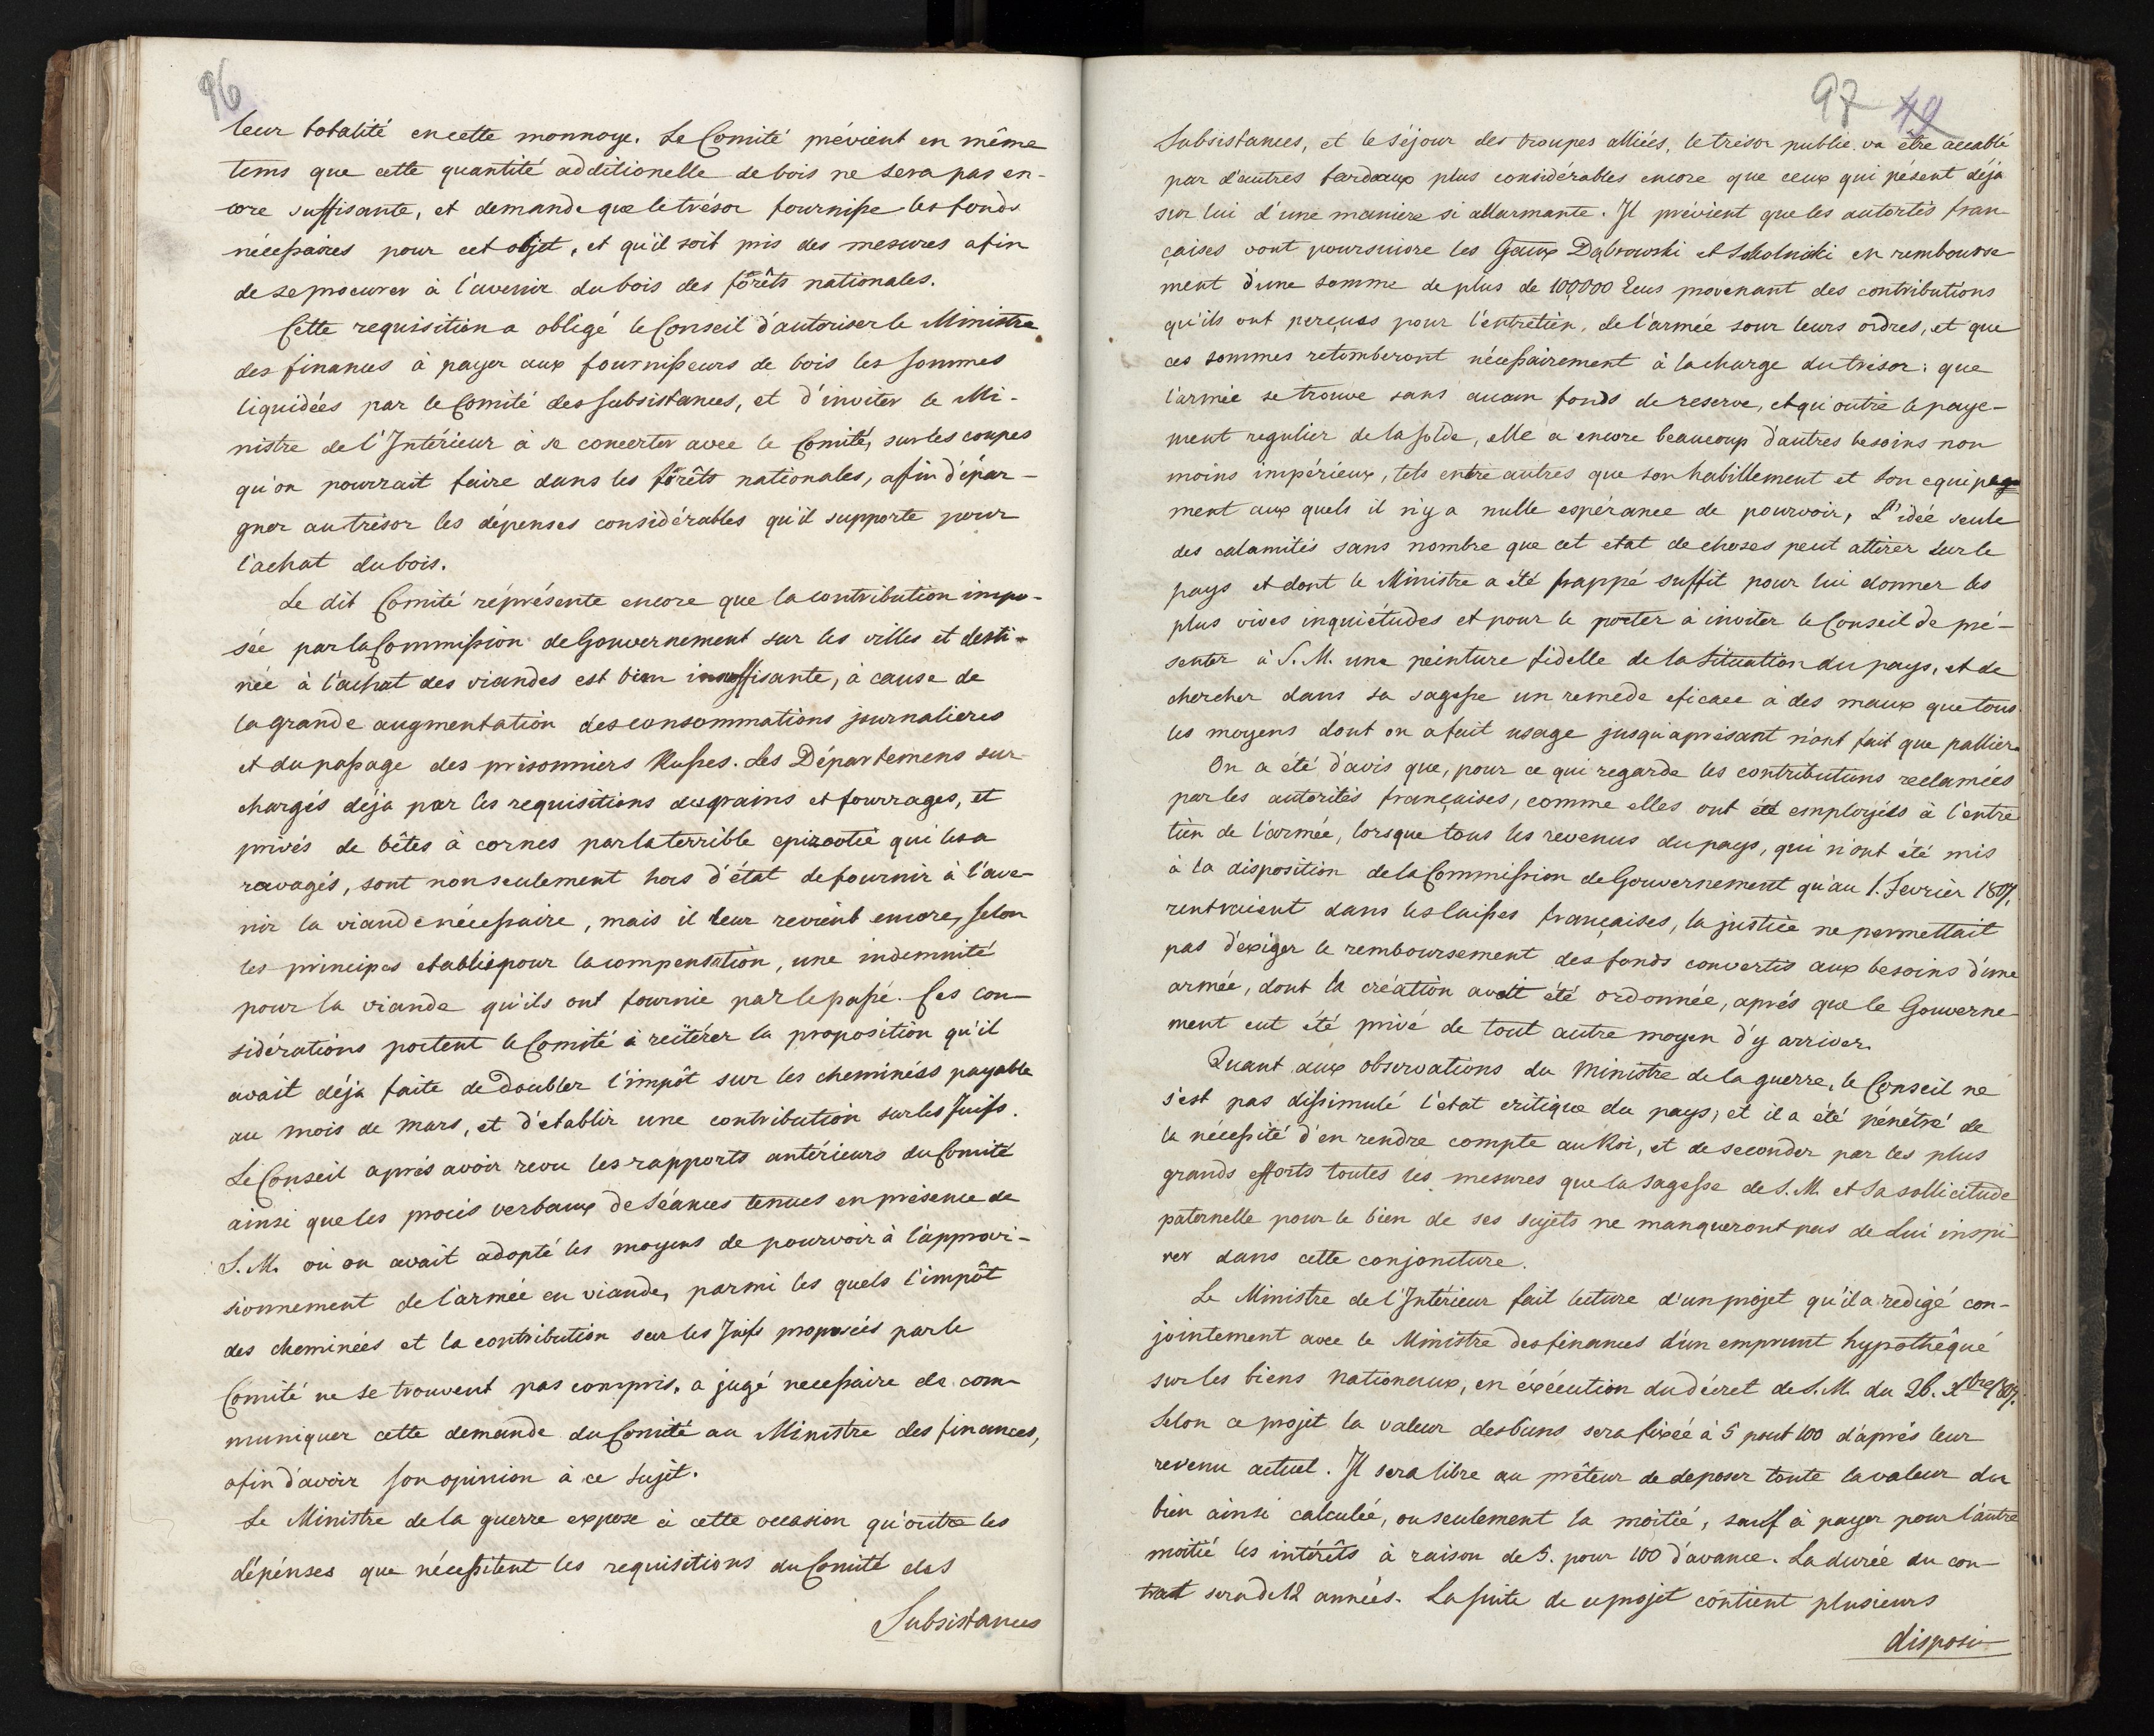 96
leur totalité en cette monnoye. Le Comité prévient en même
tems que cette quantité additionelle de bois ne sera pas en-
core suffisante, et demande que le trésor fournisse les fonds
nécessaires pour cet objet, et qu'il soit pris des mesures afin
de se procurer à l'avenir du bois des forêts nationales.
Cette requisition a obligé le Conseil d'autoriser le Ministre
des finances à payer aux fournisseurs de bois les sommes
liquidées par le Comité des subsistances, et d'inviter le Mi-
nistre de l'Intérieur à se concerter avec le Comité, sur les coupes
qu'on pourrait faire dans les forêts nationales, afin d'épar-
gner au trésor les dépenses considérables qu'il supporte pour
l'achat du bois.
Le dit Comité réprésente encore que la contribution impo-
sée par la Commission de Gouvernement sur les villes et desti-
née à l'achat des viandes est bien insuffisante, à cause de
la grande augmentation des consommations journalieres
et du passage des prisonniers Russes. Les Départemens sur-
chargés déja par les requisitions des grains et fourrages, et
privés de bêtes à cornes par la terrible epizootie qui les a
ravagés, sont non seulement hors d'état de fournir à l'ave-
nir la viande nécessaire, mais il leur revient encore, selon
les principes etablis pour la compensation, une indemnité
pour la viande qu'ils ont fournie par le passé. Ces con-
sidérations portent le Comité à reïtérer la proposition qu'il
avait déja faite de doubler l'impôt sur les cheminées payable
au mois de Mars, et d'etablir une contribution sur les Juifs.
Le Conseil aprés avoir revu les rapports antérieurs du Comité
ainsi que les procès verbaux de Séances tenues en présence de
S. M. où on avait adopté les moyens de pourvoir à l'approvi-
sionnement de l'armée en viande, parmi les quels l'impôt
des cheminées et la contribution sur les Juifs proposées par le
Comité ne se trouvent pas compris, a jugé necessaire de com-
muniquer cette demande du Comité au Ministre des finances,
afin d'avoir son opinion à ce sujet.
Le Ministre de la guerre expose à cette occasion qu'outre les
dépénses que nécessitent les requisitions du Comité des
Subsistances
97 49
Subsistances, et le séjour des troupes alliées, le trésor public va être accablé
par d'autres fardeaux plus considérables encore que ceux qui pésent déja
sur lui d'une maniere si allarmante. Il prévient que les autortés fran
çaises vont poursuivre les Gaux Dąbrowski et Sokolnicki en rembourse
ment d'une somme de plus de 100,000 Ecus provenant des contributions
qu'ils ont perçues pour l'entretien, de l'armée sour leurs ordres, et que
ces sommes retomberont nécessairement à la charge du trésor: que
l'armée se trouve sans aucun fonds de reserve, et qu'outre le paye-
ment regulier de la solde, elle a encore beaucoup d'autres besoins non
moins impérieux, tels entre autres que son habillement et son equipage
ment aux quels il n'y a nulle espérance de pourvoir, L'idée seule
des calamités sans nombre que cet etat de choses peut attirer sur le
pays et dont le Ministre a été frappé suffit pour lui donner les
plus vives inquiétudes et pour le porter à inviter le Conseil de pré-
senter à S. M. une peinture fidelle de la situation du pays, et de
chercher dans sa sagesse un remede eficace à des maux que tous
les moyens dont on a fait usage jusqu'aprésant n'ont fait que pallier.
On a été d'avis que, pour ce qui regarde les contributions reclamées
par les autorités françaises, comme elles ont été employées à l'entre
tien de l'armée, lorsque tous les revenus du pays, qui n'ont été mis
à la disposition de la Commission de Gouvernement qu'au 1. Fevrier 1807,
rentraient dans les Caisses françaises, la justice ne permettait
pas d'exiger le remboursement des fonds convertis aux besoins d'une
armée, dont la création avait été ordonnée, aprés que le Gouverne
ment eut été privé de tout autre moyen d'y arriver.
Quant aux observations du Ministre de la guerre, le Conseil ne
s'est pas dissimulé l'etat critique du pays, et il a été pénétré de
la nécessité d'en rendre compte au Roi, et de seconder par les plus
grands efforts toutes les mesures que la sagesse de S. M. et sa sollicitude
paternelle pour le bien de ses sujets ne manqueront pas de lui inspi
rer dans cette conjoncture.
Le Ministre de l'Intérieur fait lecture d'un projet qu'il a redigé con-
jointement avec le Ministre des finances d'un emprunt hypothêqué
sur les biens nationaux, en éxécution du décret de S. M. du 26. Xbre 1807.
Selon ce projet la valeur des biens sera fixée à 5 pour 100 d'aprés leur
revenu actuel. Il sera libre au prêteur de deposer toute la valeur du
bien ainsi calculée, ou seulement la moitié, sauf à payer pour l'autre
moitié les intérêts à raison de 5. pour 100 d'avance. La durée du con-
trat sera de 12 années. La suite de ce projet contient plusieurs
disposi-